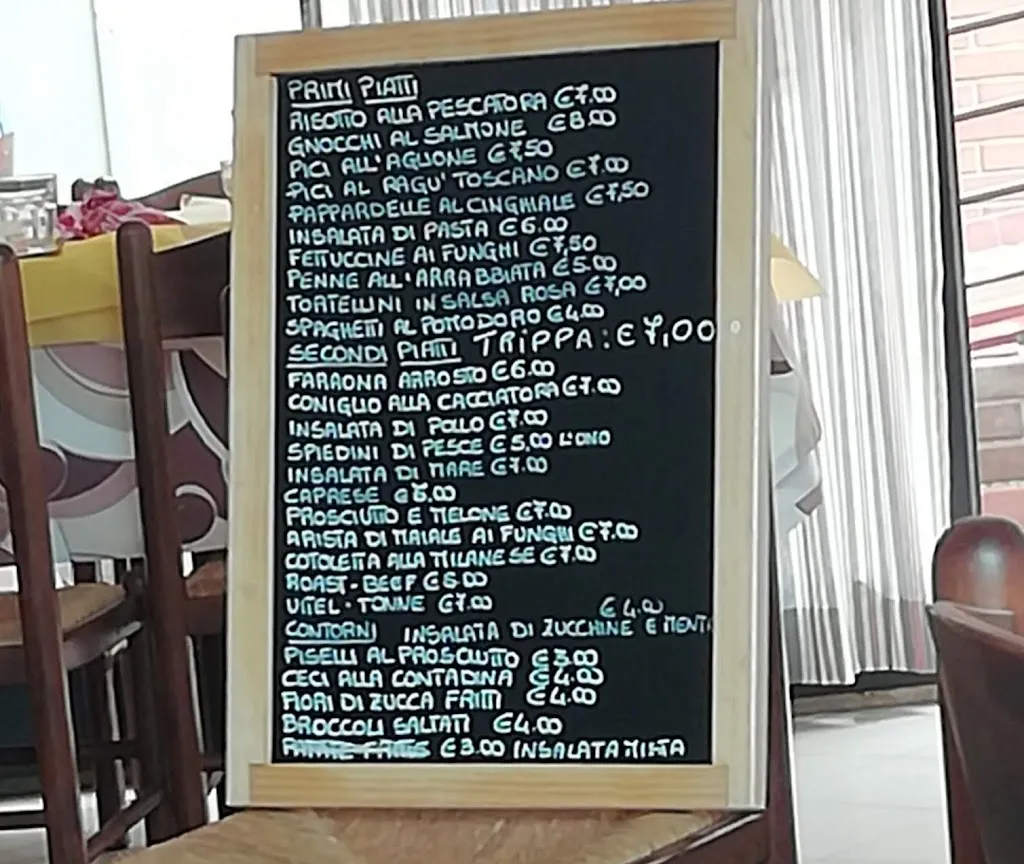 PRIMI PIATTI
RISOTTO ALLA PESCATORA €7.00
GNOCCHI AL SALMONE €8.00
PICI ALL'AGLIONE €7,50
PICI AL RAGU' TOSCANO €7.00
PAPPARDELLE AL CINGHIALE €7,50
INSALATA DI PASTA €6.00
FETTUCCINE AI FUNGHI €7,50
PENNE ALL'ARRABBIATA €5.00
TORTELLINI IN SALSA ROSA €7,00
SPAGHETTI AL POMODORO €4.00
SECONDI PIATTI TRIPPA: €7,00
FARAONA ARROSTO €6.00
CONIGLIO ALLA CACCIATORA €7.00
INSALATA DI POLLO €7.00
SPIEDINI DI PESCE €5,00 L'UNO
INSALATA DI MARE €7.00
CAPRESE €6.00
PROSCIUTTO E MELONE €7.00
ARISTA DI MAIALE AI FUNGHI €7.00
COTOLETTA ALLA MILANESE €7.00
ROAST-BEEF €6.00
VITEL-TONNE €7.00
€4.00
CONTORNI INSALATA DI ZUCCHINE E MENTA
PISELLI AL PROSCIUTTO €3.00
CECI ALLA CONTADINA €4.00
FIORI DI ZUCCA FRITTI €4.00
BROCCOLI SALTATI €4.00
€3.00 INSALATA MISTA